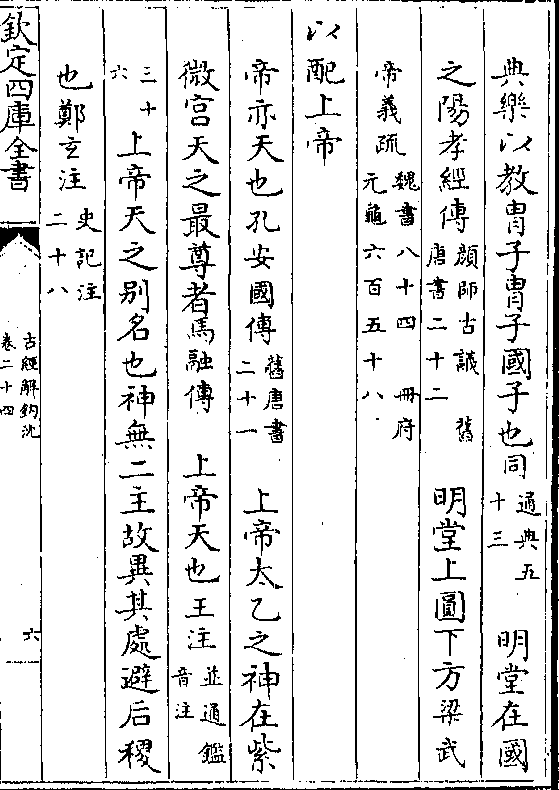 典樂以教胄子胄子國子也同通典五十三 明堂在國
之陽孝經傳顏師古議舊唐書二十二 明堂上圓下方梁武
帝義疏魏書八十四冊府元龜六百五十八
以配上帝
帝亦天也孔安國傳舊唐書二十一 上帝太乙之神在紫
微宮天之最尊者馬融傳 上帝天也王注並通鑑音注
三十六 上帝天之别名也神無二主故異其處避后稷
也鄭玄注史記注二十八
欽定四庫全書
古經解鈎沈
卷二十四
六